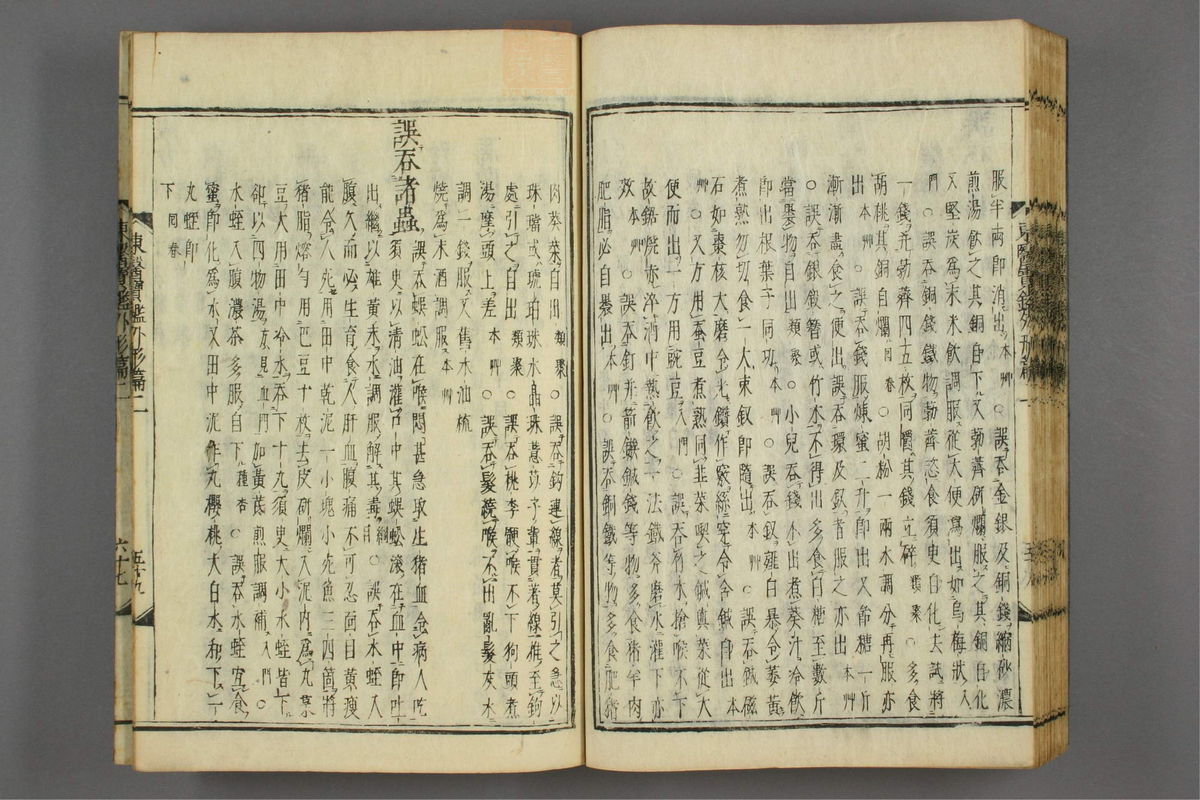 服半兩即消出本艸○誤吞金銀及銅錢縮砂濃
煎湯飮之其銅自下又葧薺硏爛服之其銅自化
又堅炭爲末米飮調服從大便瀉出如烏梅狀入
門○誤吞銅錢鐵物葧薺恣食須臾自化去試將
一錢幷葧薺四五枚同嚼其錢立碎類聚○多食
胡桃其銅自爛同春○胡粉一兩水調分再服亦
出本艸○誤吞錢服煉蜜二升卽出又飴糖一斤
漸漸盡食之便出誤吞環及釵者服之亦出本艸
○誤吞銀鍛簪或竹木不得出多食白糖至數斤
當褁物自出類聚○小兒吞錢不出煮葵汁冷飮
卽出根葉子同功本艸○誤吞釵薤白暴令萎黃
煮熟勿切食一大束釵卽隨出本艸○誤吞鍼磁
石如棗核大磨令光鑽作竅絲穿令含鍼自出本
艸○又方用蚕豆煮熟同韭菜喫之鍼與菜從大
便而出一方用豌豆入門○誤吞竹木搶喉不下
故鋸燒赤淬酒中熱飮之一法鐵斧磨水灌下亦
效本艸○誤吞釘幷箭鏃鍼錢等物多食猪羊肉
肥脂必自褁出本艸○誤吞銅鐵等物多食肥猪
肉葵菜自出類聚○誤吞鉤連線者莫引之急以
珠璫或琥珀珠水晶珠薏苡子輩貫着線推至鉤
處引之自出類聚○誤吞桃李鯁喉不下狗頭煮
湯摩頭上差本艸○誤吞髮繞喉不出亂髮灰水
調一錢服又舊木油梳
燒爲末酒調服本艸
誤吞諸蟲誤吞蜈蚣在喉悶甚急取生猪血令病人吃
須臾以淸油灌口中其蜈蚣滾在血中卽吐
出繼以雄黃末水調服解其毒綱目○誤吞水蛭入
腹久而必生育食人肝血腹痛不可忍面目黃瘦
能令人死用田中乾泥一小塊小死魚三四箇將
猪脂熔勻用巴豆十枚去皮硏爛入泥內爲丸菉
豆大用田中冷水吞下十丸須臾大小水蛭皆下
却以四物湯方見血門加黃芪煎服調補入門○
水蛭入腹濃茶多服自下種杏○誤吞水蛭宜食
蜜卽化爲水又田中泥作丸櫻桃大白水和下一
丸蛭卽
下同春
東醫寶鑑外形篇二
六十七
五十九